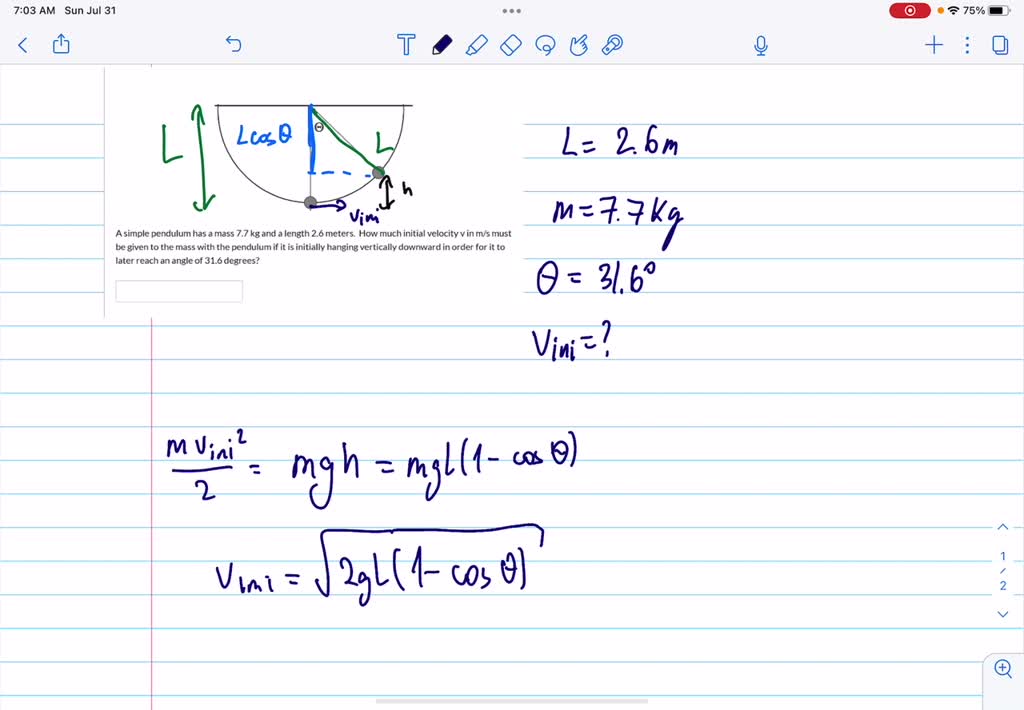 7:03 AM Sun Jul 31
75%
T
L
Lcosθ
Θ
L
h
Vini
A simple pendulum has a mass 7.7 kg and a length 2.6 meters. How much initial velocity v in m/s must
be given to the mass with the pendulum if it is initially hanging vertically downward in order for it to
later reach an angle of 31.6 degrees?
L = 2.6m
m = 7.7 Kg
θ = 31.6°
Vini = ?
m Vini² / 2 = mgh = mgL(1 - cos θ)
Vini = √2gL(1 - cos θ)
1
/
2